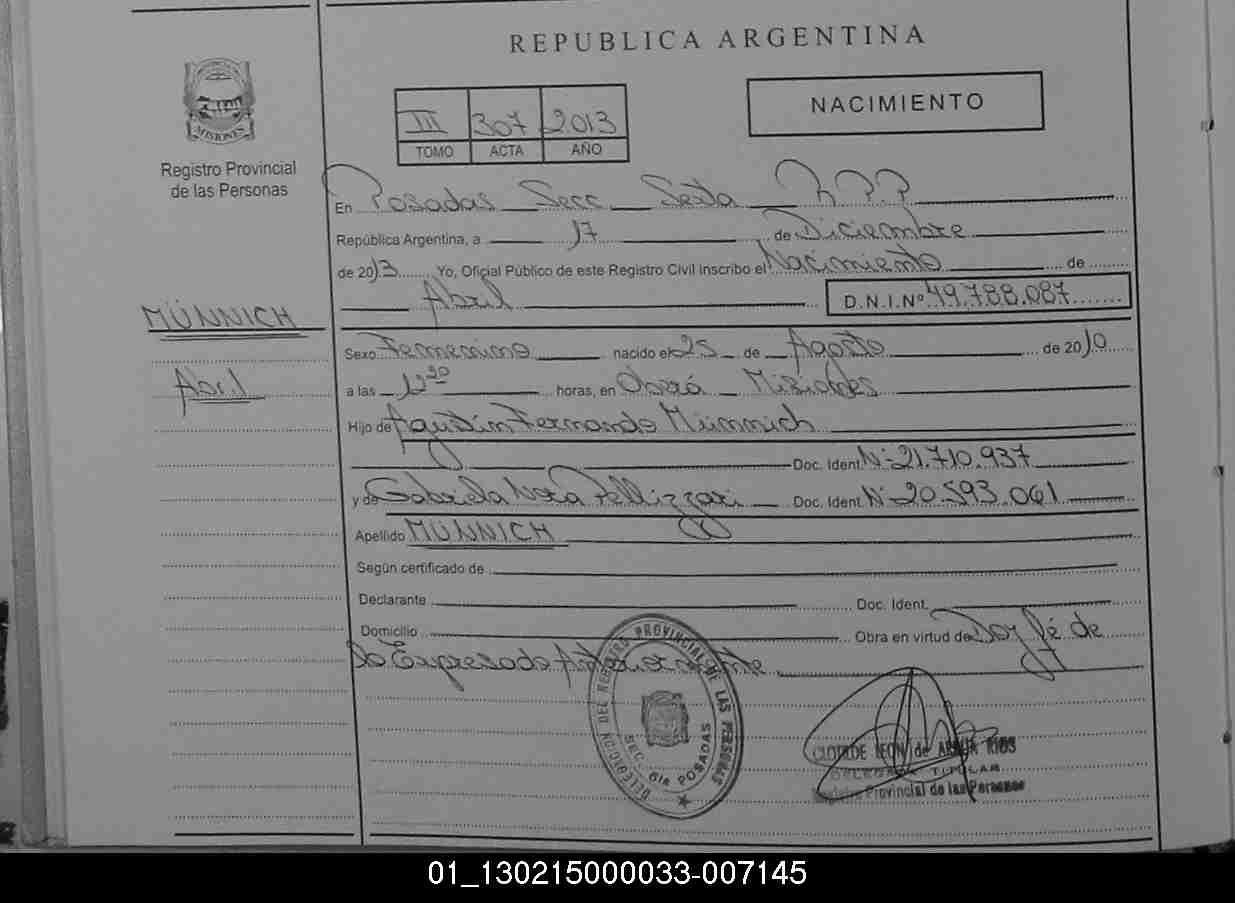 REPUBLICA ARGENTINA
MISIONES
Registro Provincial
de las Personas
III 307 2013
TOMO ACTA AÑO
NACIMIENTO
En Posadas Secc Sexta R.P.P
República Argentina, a 17 de Diciembre
de 2013 Yo, Oficial Público de este Registro Civil inscribo el Nacimiento de
Abril D.N.I.Nº 49.788.087
MÜNNICH
Abril
Sexo Femenino nacido el 25 de Agosto de 2010
a las horas, en Oberá Misiones
Hijo de Agustín Fernando Münnich
Doc. Ident. Nº 21.710.937
y de Gabriela Nora Pellizzari Doc. Ident. Nº 20.593.061
Apellido MÜNNICH
Según certificado de
Declarante Doc. Ident.
Domicilio Obra en virtud de Doy fé de
lo Expresado Anteriormente
DELEGACION DEL REGISTRO PROVINCIAL DE LAS PERSONAS
SEC. 6ta POSADAS
CLOTILDE LEON de RIOS
DELEGADA TITULAR
Provincial de las Personas
01_130215000033-007145